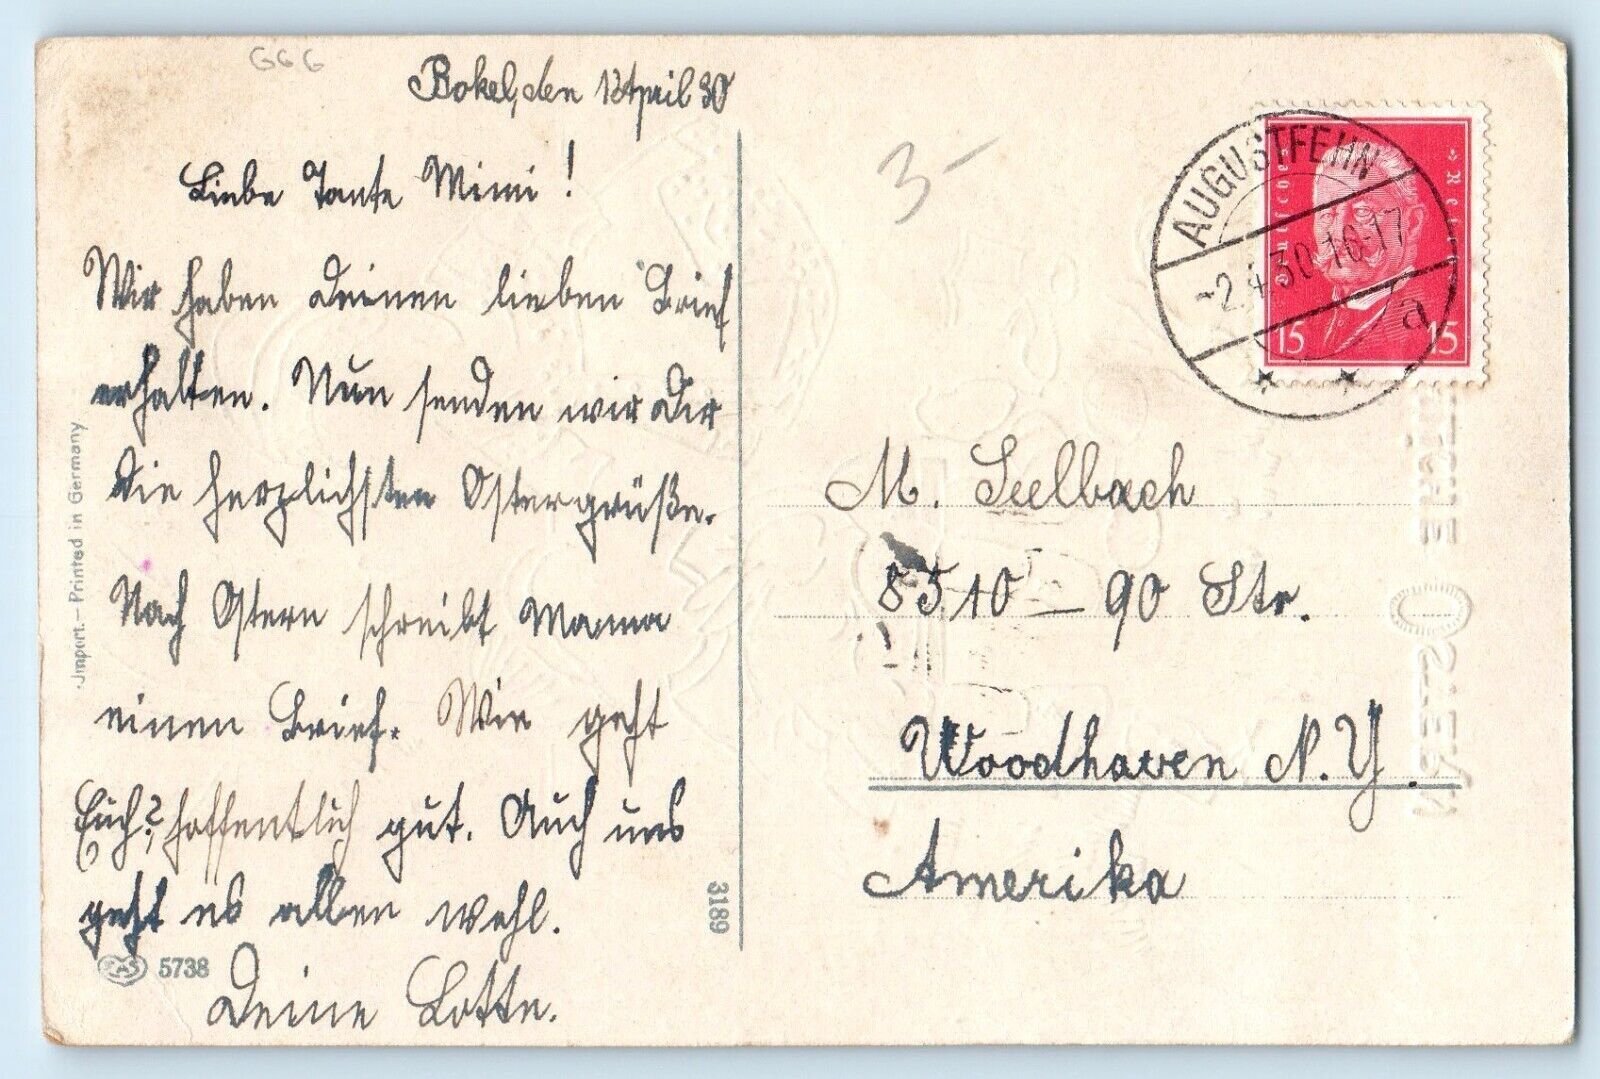 GGG
Bokel, den 1. April 30
Liebe Tante Mimi!
Wir haben Deinen lieben Brief
erhalten. Nun senden wir Dir
die herzlichsten Ostergrüße.
Nach Ostern schreibt Mama
einen Brief. Wie geht
Euch?, hoffentlich gut. Auch uns
geht es allen wohl.
Deine Lotte.
Import.—Printed in Germany
5738
3189
3-
AUGUSTFEHN
-2.4.30.16-17
a
Deutsches
15 15
M. Seelbach
8510 – 90 Str.
Woodhaven N.Y.
Amerika